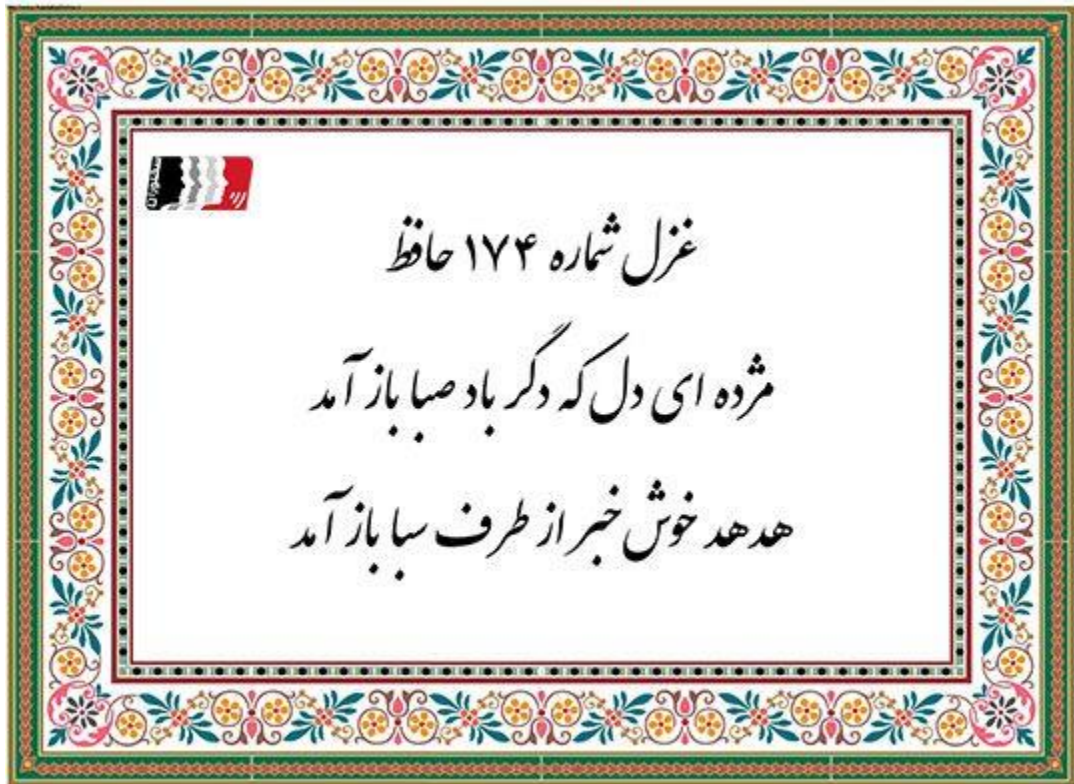 غزل شماره ۱۷۴ حافظ
مژده ای دل که دگر باد صبا باز آمد
هدهد خوش خبر از طرف سبا باز آمد